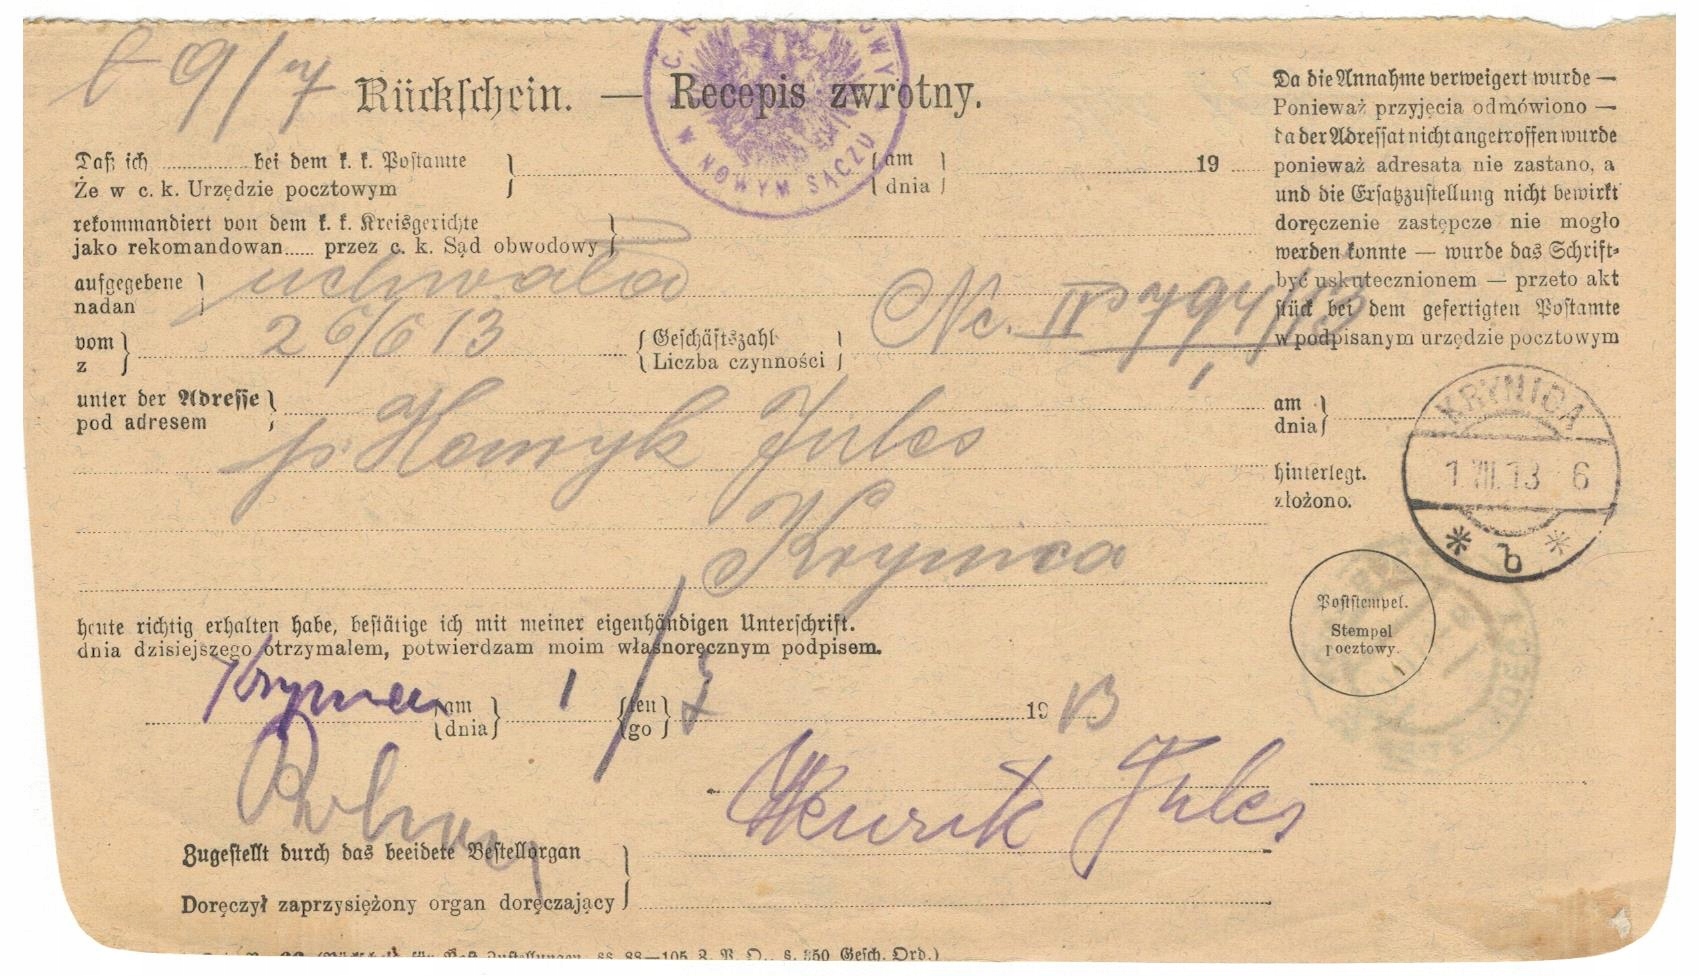 9/7
Rückschein. — Recepis zwrotny.
W NOWYM SĄCZU
Daß ich ............ bei dem k. k. Postamte
Że w c. k. Urzędzie pocztowym
am
dnia
19
rekommandiert von dem k. k. Kreisgerichte
jako rekomandowan...... przez c. k. Sąd obwodowy
aufgegebene
nadan
uchwała
vom
z
26/6 13
Geschäftszahl
Liczba czynności
Nc. IV 794/13
unter der Adresse
pod adresem
p. Henryk Jules
Krynica
heute richtig erhalten habe, bestätige ich mit meiner eigenhändigen Unterschrift.
dnia dzisiejszego otrzymałem, potwierdzam moim własnoręcznym podpisem.
Krynica
am
dnia
1
ten
go
7
19 13
Henrik Jules
Zugestellt durch das beeidete Bestellorgan
Doręczył zaprzysiężony organ doręczający
Da die Annahme verweigert wurde —
Ponieważ przyjęcia odmówiono —
da der Adressat nicht angetroffen wurde
ponieważ adresata nie zastano, a
und die Ersatzzustellung nicht bewirkt
doręczenie zastępcze nie mogło
werden konnte — wurde das Schrift-
być uskutecznionem — przeto akt
stück bei dem gefertigten Postamte
w podpisanym urzędzie pocztowym
am
dnia
hinterlegt.
złożono.
KRYNICA
1 VII. 13 6
* b *
Poststempel.
Stempel
pocztowy.
(Rückschein für Post-Zustellungen, §§ 88—105 Z. P. O., §. 350 Gesch. Ord.)